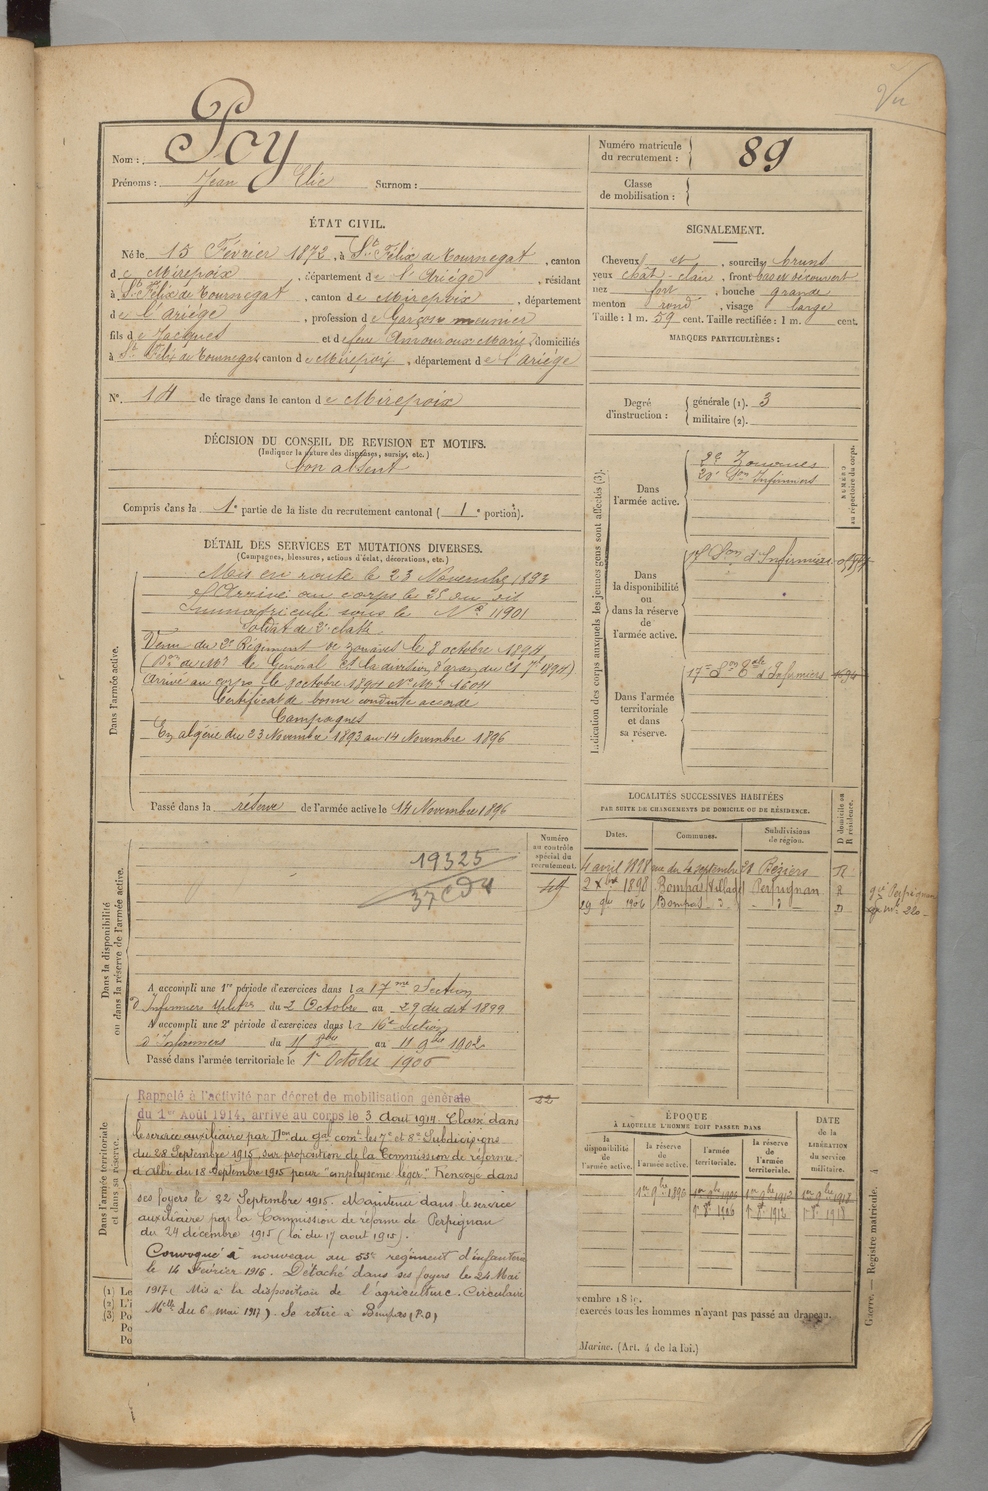 Vu
Nom : Pey
Prénoms : Jean Elie Surnom :
Numéro matricule du recrutement : 89
Classe de mobilisation :
ÉTAT CIVIL.
Né le 15 Février 1872, à St Félix de Tournegat, canton
de Mirepoix, département de l'Ariège, résidant
à St Félix de Tournegat, canton de Mirepoix, département
de l'ariège, profession de Garçon meunier
fils de Jacques et de feue Amouroux Marie, domiciliés
à St Félix de Tournegat canton de Mirepoix, département de l'ariége
N° 14 de tirage dans le canton de Mirepoix
SIGNALEMENT.
Cheveux et sourcils bruns
yeux chât. clair, front bas et découvert
nez fort, bouche grande
menton rond, visage large
Taille : 1 m. 59 cent. Taille rectifiée : 1 m. cent.
MARQUES PARTICULIÈRES :
Degré d'instruction : générale (1). 3
militaire (2).
DÉCISION DU CONSEIL DE REVISION ET MOTIFS.
(Indiquer la nature des dispenses, sursis, etc.)
bon absent
Compris dans la 1e partie de la liste du recrutement cantonal (1e portion).
DÉTAIL DES SERVICES ET MUTATIONS DIVERSES.
(Campagnes, blessures, actions d'éclat, décorations, etc.)
Dans l'armée active.
Mis en route le 23 Novembre 1893
Arrivé au corps le 25 du dit
Immatriculé sous le N° 11901
Soldat de 2e classe
Venu du 2e Régiment de zouaves le 8 octobre 1894
Arrivé au corps le 8 octobre 1894 N° Mle 1604
Certificat de bonne conduite accordé
Campagnes
En algérie du 23 Novembre 1893 au 14 Novembre 1896
Passé dans la réserve de l'armée active le 14 Novembre 1896
Indication des corps auxquels les jeunes gens sont affectés (3).
NUMÉRO au répertoire du corps.
Dans l'armée active.
2e Zouaves
20e Son Infirmiers
Dans la disponibilité ou dans la réserve de l'armée active.
Son d'Infirmiers
Dans l'armée territoriale et dans sa réserve.
17e Son d'Infirmiers
LOCALITÉS SUCCESSIVES HABITÉES
PAR SUITE DE CHANGEMENTS DE DOMICILE OU DE RÉSIDENCE.
Dates. Communes. Subdivisions de région. D domicile ou R résidence.
4 avril 1898 rue du 4 septembre 20 Béziers R
2 Xbre 1898 Bompas Village Perpignan R
29 1906 Bompas d° d° D
Dans la disponibilité ou dans la réserve de l'armée active.
Numéro au contrôle spécial du recrutement.
19325
49
A accompli une 1re période d'exercices dans la 17me Section
d'Infirmiers milit.res du 2 Octobre au 29 du dit 1899
A accompli une 2e période d'exercices dans la 16e section
d'Infirmiers du 15 au 11 9bre 1902
Passé dans l'armée territoriale le 1er Octobre 1906
Dans l'armée territoriale et dans sa réserve.
22
Rappelé à l'activité par décret de mobilisation générale
du 1er Août 1914, arrivé au corps le 3 Aout 1914. Classé dans
le service auxiliaire par Don du gal comt les 7e et 8e Subdivisions
du 28 Septembre 1915 sur proposition de la Commission de réforme
d'Albi du 18 Septembre 1915 pour "emphysème leger". Renvoyé dans
ses foyers le 22 Septembre 1915. Maintenu dans le service
auxiliaire par la Commission de réforme de Perpignan
du 24 décembre 1915 (loi du 17 aout 1915).
Convoqué à nouveau au 53e regiment d'infanterie
le 14 Février 1916. Détaché dans ses foyers le 24 Mai
1917. Mis à la disposition de l'agriculture. Circulaire
Mlle du 6 mai 1917). Se retire à Bompas (P.O)
ÉPOQUE
À LAQUELLE L'HOMME DOIT PASSER DANS
la disponibilité de l'armée active.
la réserve de l'armée active.
l'armée territoriale.
la réserve de l'armée territoriale.
DATE de la LIBÉRATION du service militaire.
1er 9bre 1896 1er 9bre 1906 1er 9bre 1912 1er 9bre 1918
1er 8bre 1906 1er 8bre 1912 1er 8bre 1918
(1) Le
(2) L'i
(3) Po
Po
Po
exercés tous les hommes n'ayant pas passé au drapeau.
Marine. (Art. 4 de la loi.)
Guerre. — Registre matricule.